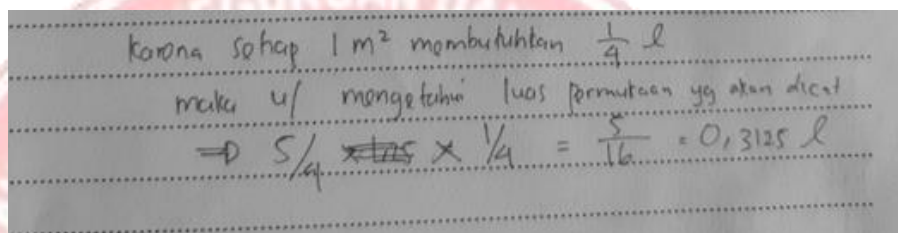 Karena setiap 1 m² membutuhkan 1/4 l
maka u/ mengetahui luas permukaan yg akan dicat
⇒ 5/4 x 1/4 = 5/16 = 0,3125 l